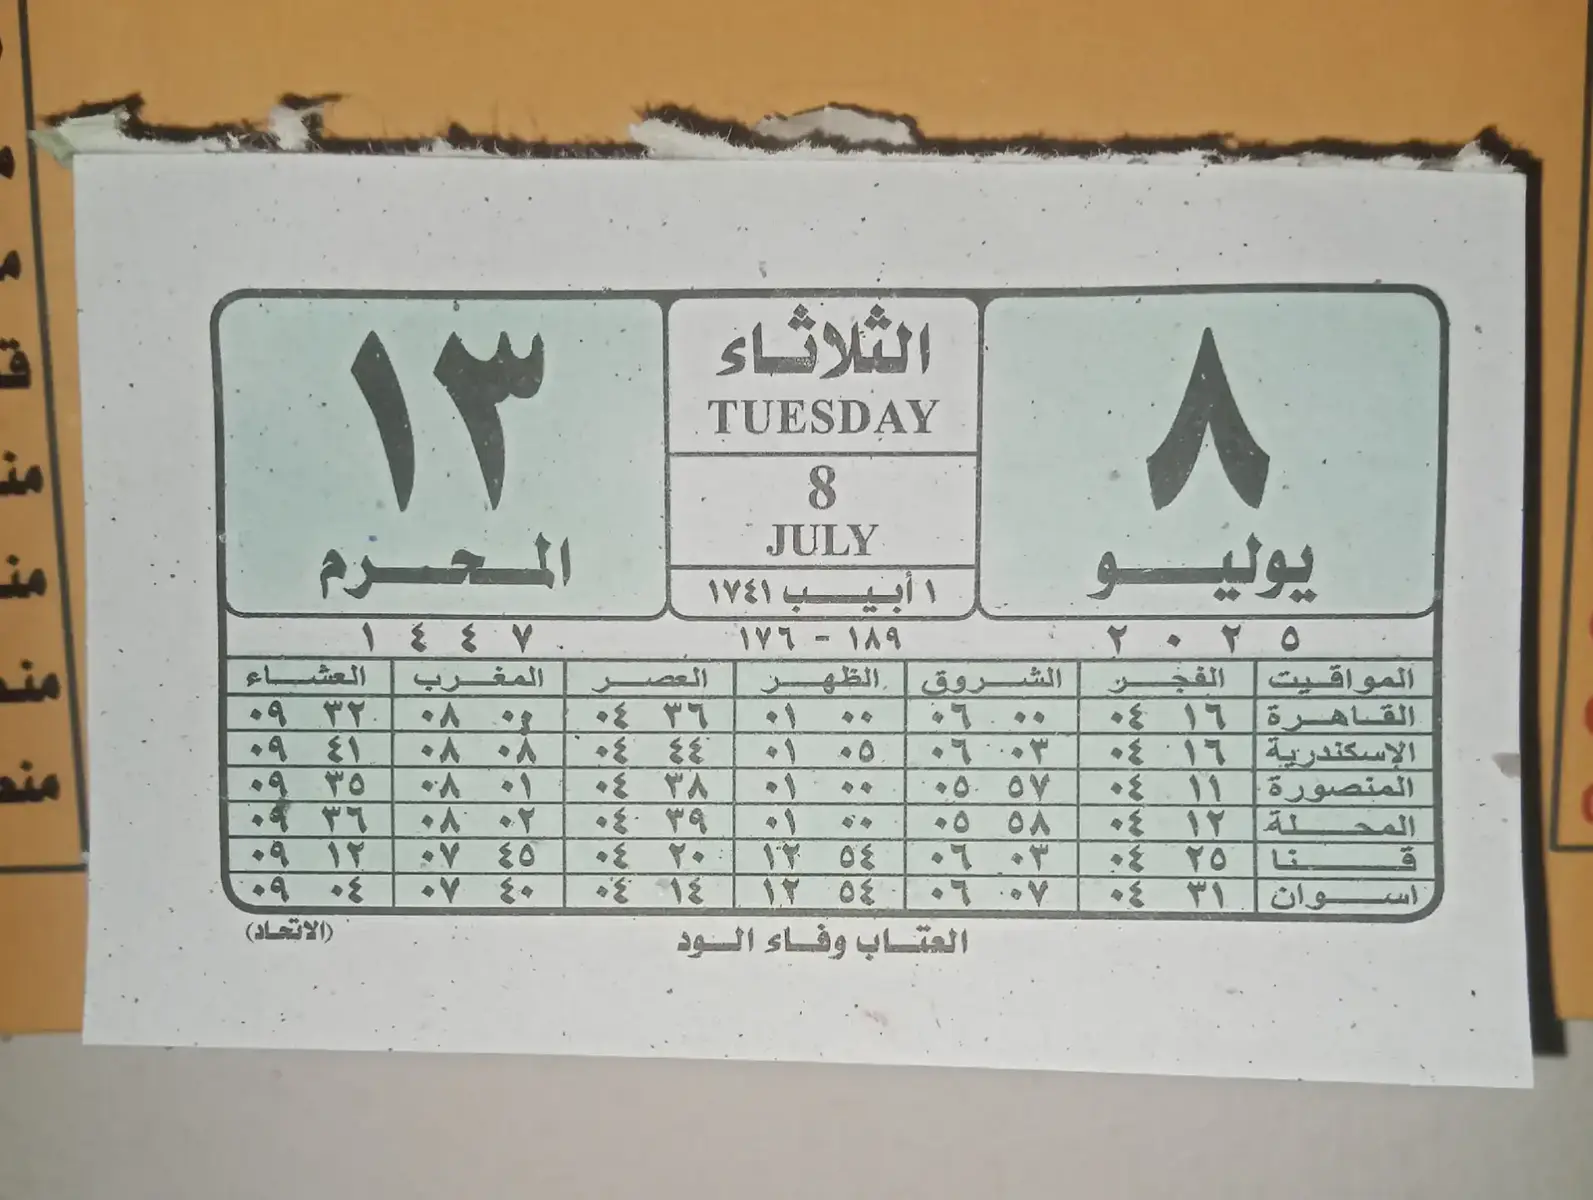 ٨
يوليو
٢٠٢٥
الثلاثاء
TUESDAY
8
JULY
١ أبيب ١٧٤١
١٨٩ - ١٧٦
١٣
المحرم
١٤٤٧
المواقيت الفجر الشروق الظهر العصر المغرب العشاء
القاهرة ١٦ ٠٤ ٠٠ ٠٦ ٠٠ ٠١ ٣٦ ٠٤ ٠٨ ٣٢ ٠٩
الإسكندرية ١٦ ٠٤ ٠٣ ٠٦ ٠٥ ٠١ ٤٤ ٠٤ ٠٨ ٠٨ ٤١ ٠٩
المنصورة ١١ ٠٤ ٥٧ ٠٥ ٠٠ ٠١ ٣٨ ٠٤ ٠١ ٠٨ ٣٥ ٠٩
المحلة ١٢ ٠٤ ٥٨ ٠٥ ٠٠ ٠١ ٣٩ ٠٤ ٠٢ ٠٨ ٣٦ ٠٩
قنا ٢٥ ٠٤ ٠٣ ٠٦ ٥٤ ١٢ ٢٠ ٠٤ ٤٥ ٠٧ ١٢ ٠٩
اسوان ٣١ ٠٤ ٠٧ ٠٦ ٥٤ ١٢ ١٤ ٠٤ ٤٠ ٠٧ ٠٤ ٠٩
العتاب وفاء الود
(الاتحاد)